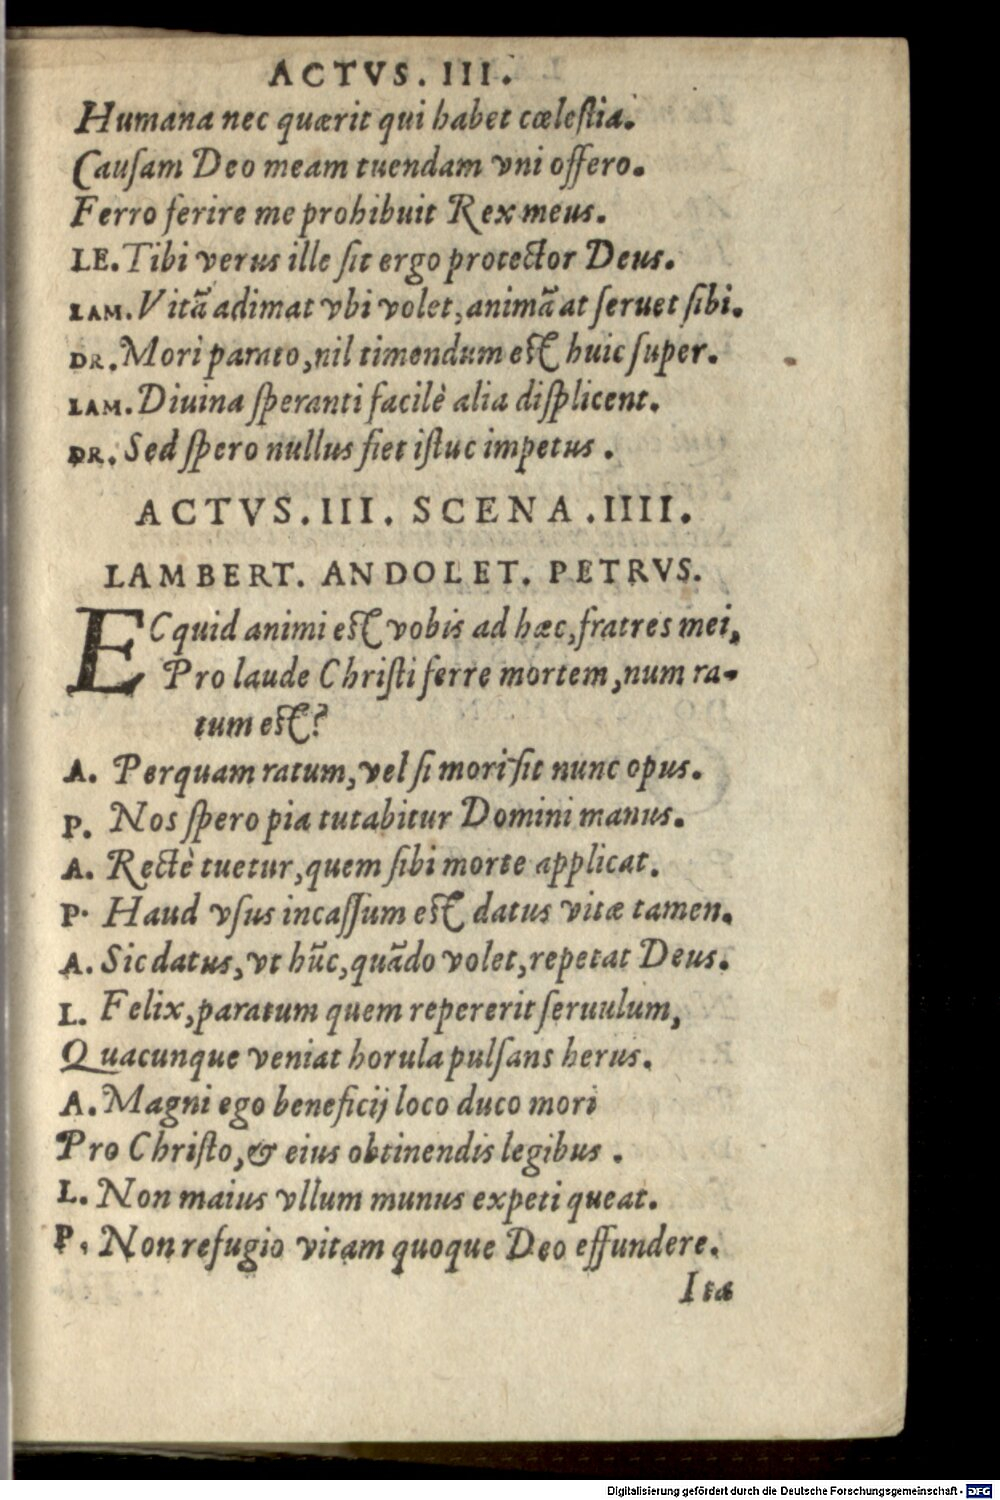 ACTVS. III.
Humana nec quærit qui habet cœlestia.
Causam Deo meam tuendam vni offero.
Ferro ferire me prohibuit Rex meus.
LE. Tibi verus ille sit ergo protector Deus.
LAM. Vitã adimat vbi volet, animã at seruet sibi.
DR. Mori parato, nil timendum est huic super.
LAM. Diuina speranti facilè alia displicent.
DR. Sed spero nullus fiet istuc impetus .
ACTVS. III. SCENA. IIII.
LAMBERT. ANDOLET. PETRVS.
ECquid animi est vobis ad hæc, fratres mei,
Pro laude Christi ferre mortem, num ra-
tum est?
A. Perquam ratum, vel si mori sit nunc opus.
P. Nos spero pia tutabitur Domini manus.
A. Rectè tuetur, quem sibi morte applicat.
P. Haud vsus incassum est datus vitæ tamen.
A. Sic datus, vt hũc, quãdo volet, repetat Deus.
L. Felix, paratum quem repererit seruulum,
Quacunque veniat horula pulsans herus.
A. Magni ego beneficij loco duco mori
Pro Christo, & eius obtinendis legibus .
L. Non maius vllum munus expeti queat.
P. Non refugio vitam quoque Deo effundere.
Ita
Digitalisierung gefördert durch die Deutsche Forschungsgemeinschaft - DFG